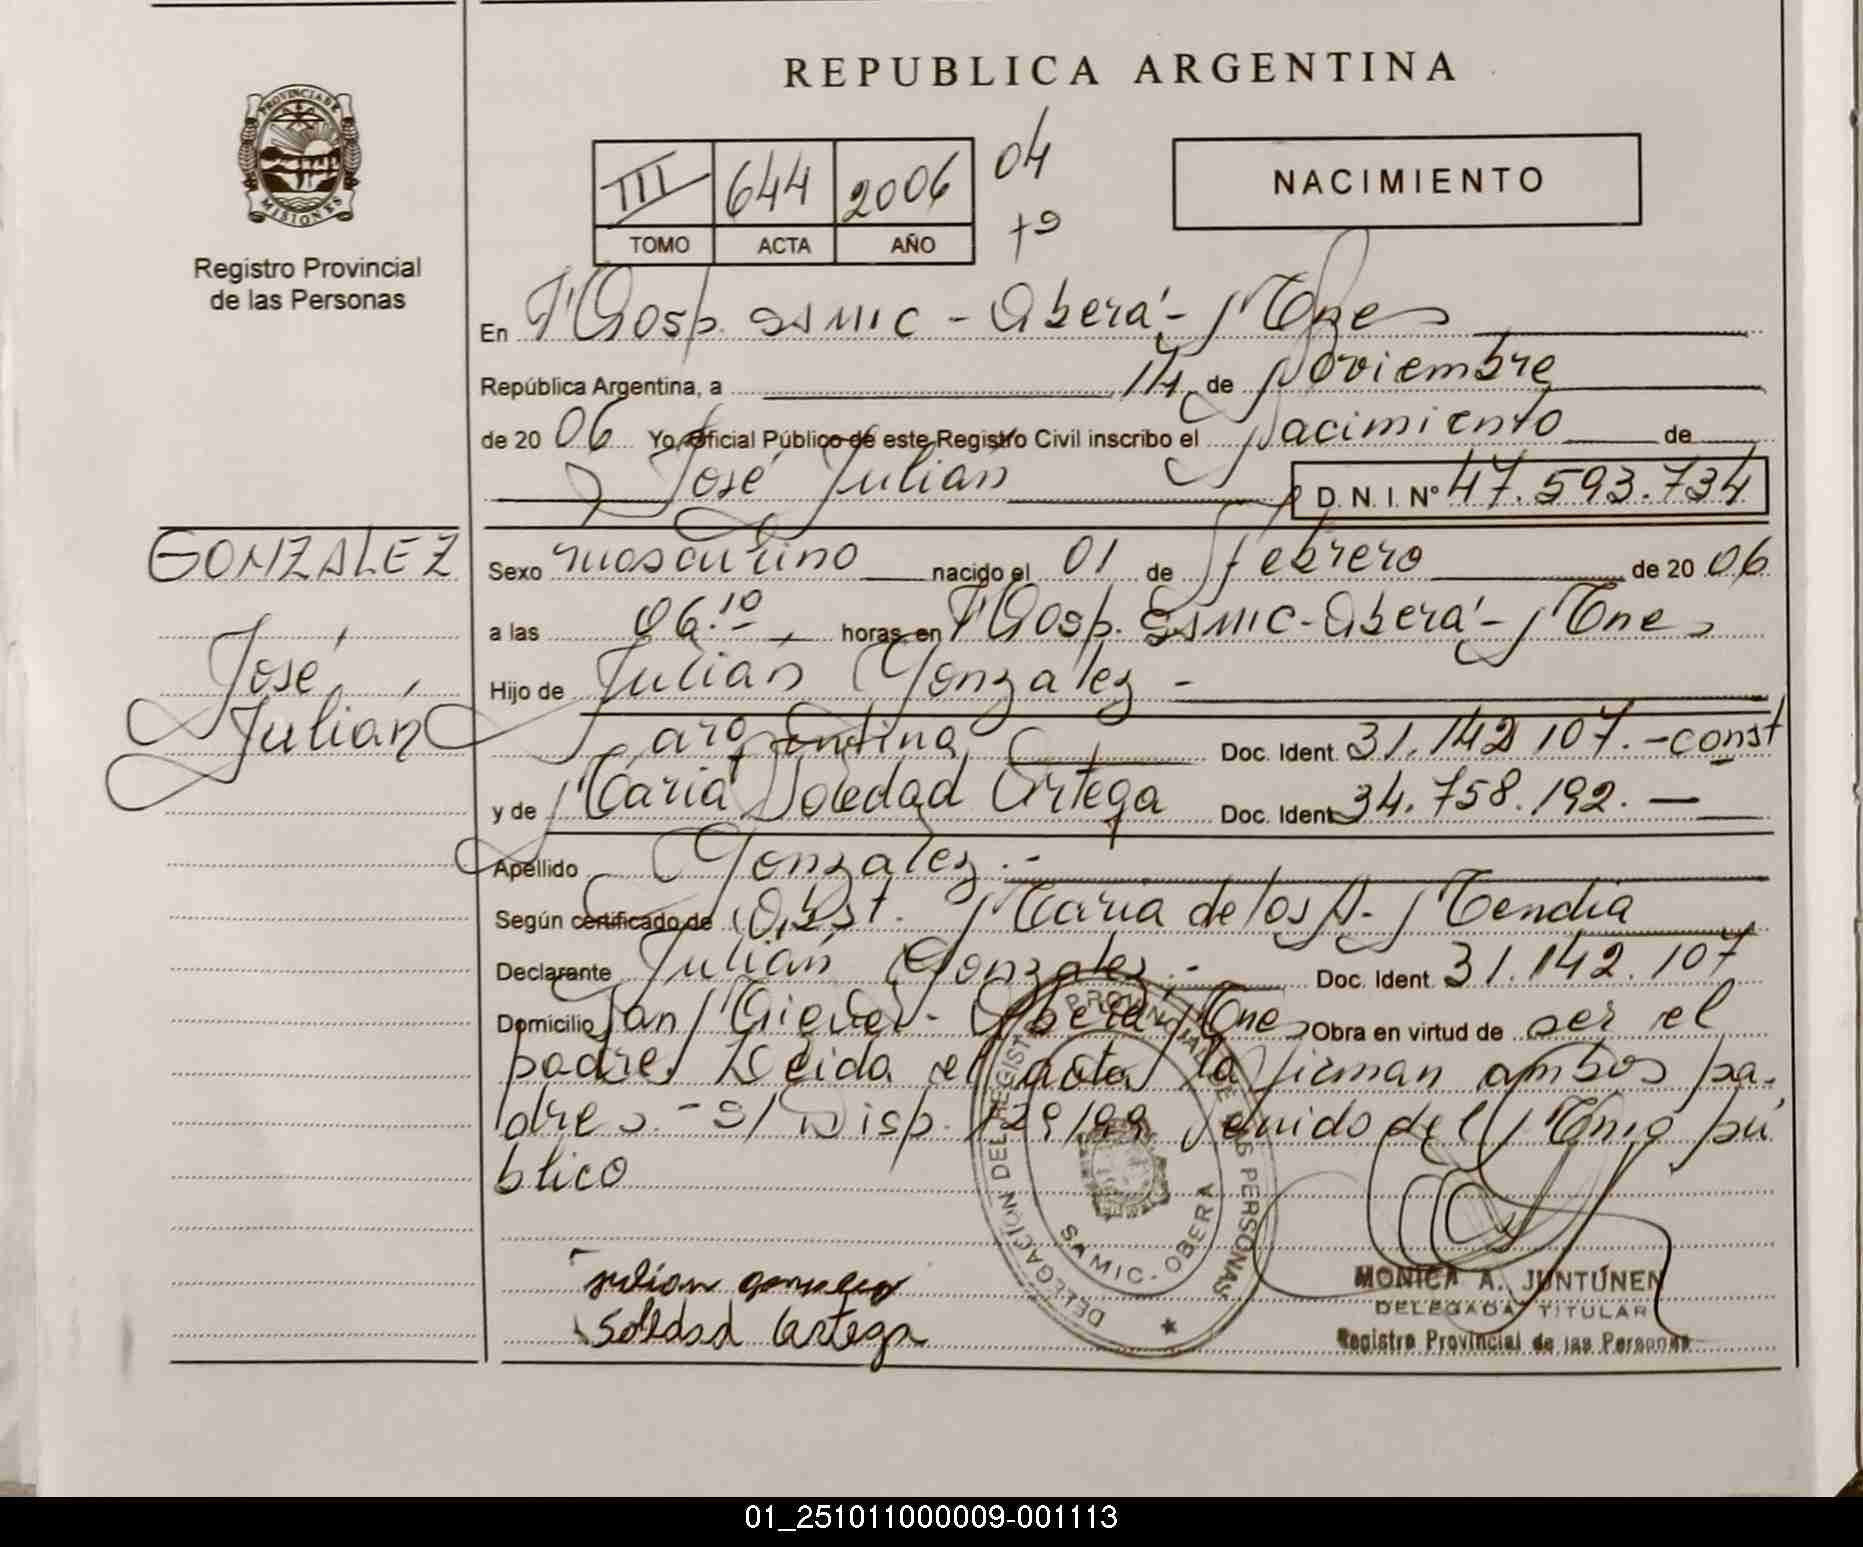 REPUBLICA ARGENTINA
PROVINCIA DE
MISIONES
Registro Provincial
de las Personas
III 644 2006 04
TOMO ACTA AÑO
NACIMIENTO
En Hosp. SAMIC - Oberá - Mnes
República Argentina, a 14 de Noviembre
de 20 06 Yo, Oficial Público de este Registro Civil inscribo el Nacimiento de
José Julián D. N. I. Nº 47.593.734
GONZALEZ
José
Julián
Sexo masculino nacido el 01 de febrero de 20 06
a las 06:10 horas, en Hosp. SAMIC - Oberá - Mnes
Hijo de Julián Gonzalez -
argentina Doc. Ident. 31.142 107. - const
y de María Soledad Ortega Doc. Ident. 34.758.192. —
Apellido Gonzalez. -
Según certificado de Obst. María de los A. Mendia
Declarante Julián Gonzalez. - Doc. Ident. 31.142.107
Domicilio San - Oberá Mnes Obra en virtud de ser el
padre. Leida el acta la firman ambos pa-
dres. - S/ Disp. 129/99 del Mnio pú
blico
DELEGACION DEL REGISTRO PROVINCIAL DE LAS PERSONAS
SAMIC - OBERA
Julian gonzalez
Soledad Ortega
MONICA A. JUNTUNEN
DELEGADA TITULAR
Registro Provincial de las Personas
01_251011000009-001113